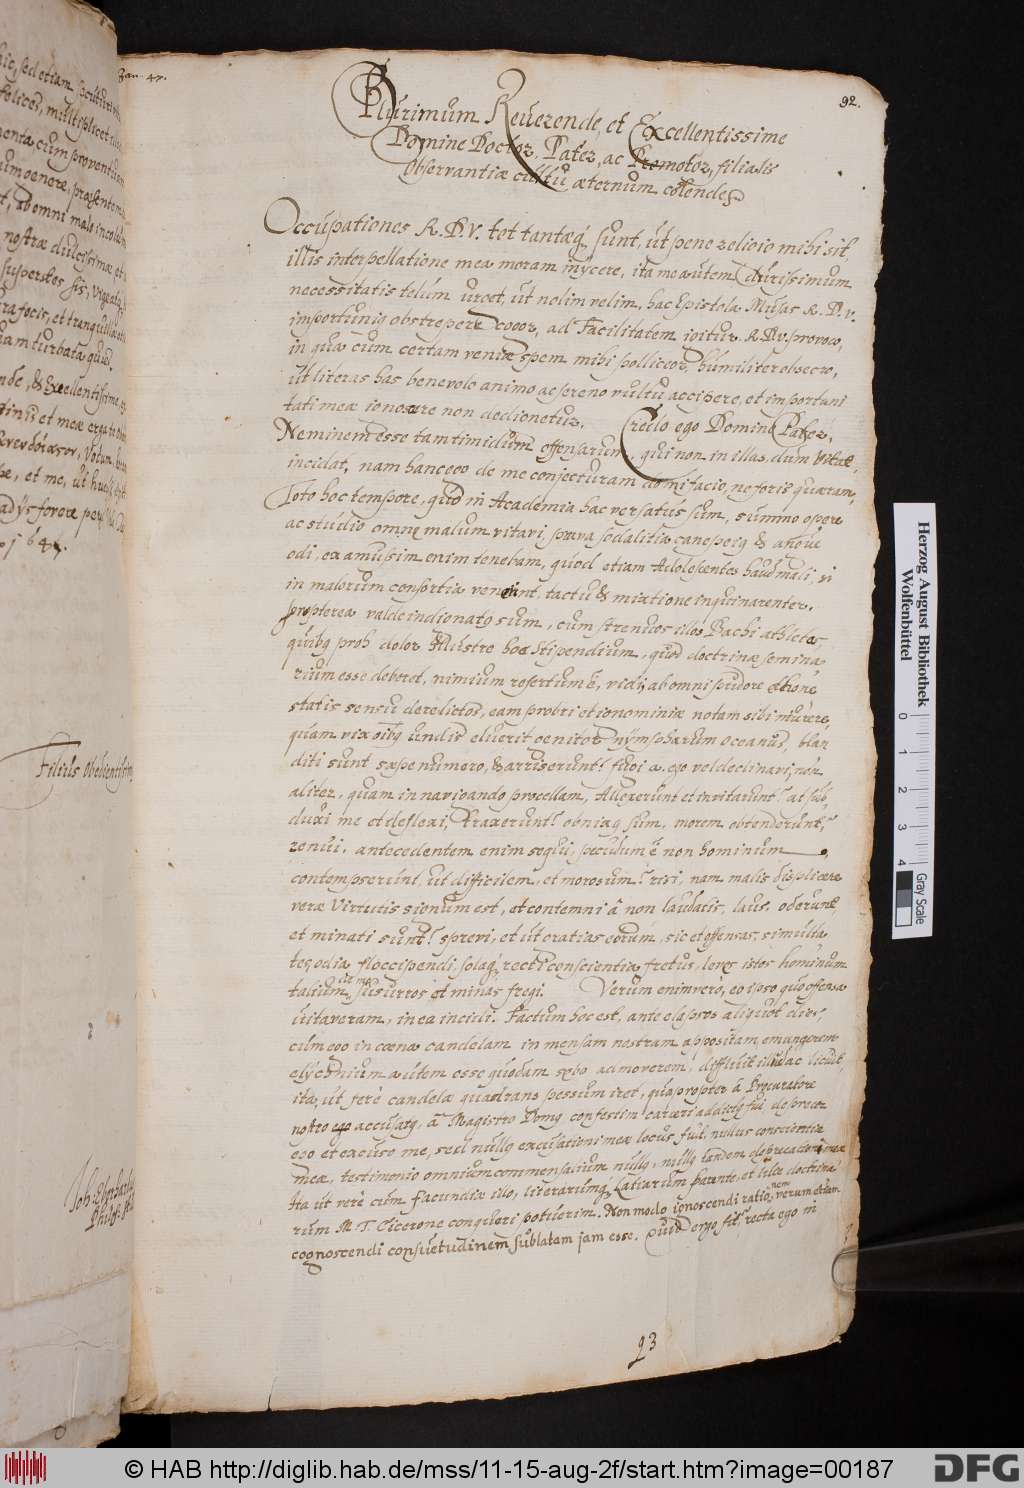 hic, sed etiam
felices, multiplicet
cum proventu
ab omni malo
nostræ dulcissimæ et
superstes sis,
focis, et
turbata
Excellentissime
et meæ erga te
Votum
et me, ut
fovere
1647.
Filius Obedientissimus
Joh: Eberhard
Jan. 47.
92.
Plurimum Reverende, et Excellentissime
Domine Doctor, Pater, ac Promotor, filialis
observantiæ cultu æternum colende,
Occupationes R. D. V. tot tantæq́ sunt, ut pene religio mihi sit,
illis interpellatione mea moram injicere, ita me autem durissimum
necessitatis telum urget, ut nolim velim, hac Epistola Musas R. D. V.
importunig obstrepere cogor, ad Facilitatem igitur R. D. V. provoco,
in qua cum certam veniæ spem mihi polliceor, humiliter obsecro,
ut literas has benevolo animo ac sereno vultu accipere, et importuni
tati meæ ignoscere non dedignetur. Credo ego Domine Pater,
Neminem esse tam timidum offensarum, qui non in illas, dum vitat,
incidat, nam hanc ego de me conjecturam domi facio, ne foris quæram,
Toto hoc tempore, quo in Academia hac versatus sum, summo opere
ac studio omne malum vitavi, prava sodalitia cane pejg & angue
odi, ex amussim enim tenebam, quod etiam Adolescentes haud mali, si
in malorum consortia veniunt, tactu & mixtione inquinarentur.
propterea valde indignatg sum, cum strenuos illos Bachi athletas,
quibg proh dolor Illustre hoc Stipendium, quod doctrinæ semina
rium esse deberet, nimium refertum ē, vidi, ab omni pudore & hone
statis sensu derelictos, eam probri et ignominiæ notam sibi inurere,
quam vix oībg undis eluerit genitor Nympharum Oceanus, blan
diti sunt sæpe numero, & arriserunt? fugi a. ego vel declinavi, non
aliter, quam in navigando procellam, Allexerunt et invitarunt? at sub,
duxi me et deflexi, Traxerunt? obnixg sum, morem obtenderunt,?
renui, antecedentem enim sequi, pecudum ē non hominum
contempserunt, ut difficilem, et morosum? risi, nam malis displicere
veræ Virtutis signum est, et contemni à non laudatis, laus. oderunt,
et minati sunt? sprevi, et ut gratias eorum, sic et offensas, simulta
tes, odia flocci pendi, solaq́ recti conscientia fretus, leves istos hominum
talium susurros et minas fregi. Verum enimvero, eo ipso quo offensa
vitaveram, in ea incidi. Factum hoc est, ante elapsos aliquot dies,
cum ego in cœna candelam in mensam nostram appositam emungerem
elychnium autem esse quodam sebo admoverem, diffluit illud ac licuit,
ita, ut fere candelæ quadrans pessum iret, quapropter à Procuratore
nostro ego accusatg, à Magistro Domg confestim carceri addictg fui, deprecor
ego et excuso me, sed nullg excusationi meæ locus fuit, nullus conscientiæ
meæ, testimonio omnium commensalium nullg, nullg tandem deprecationi meæ
Ita ut vere cum facundiæ illo, literarumq́ Latiarum parente, et luce doctrina
rum M. T. Cicerone conqueri potuerim. Non modo ignoscendi rationem, verum etiam
cognoscendi consuetudinem sublatam jam esse. Quid ergo fit? recta ego in
93
Herzog August Bibliothek
Wolfenbüttel
0 1 2 3 4
Gray Scale
© HAB http://diglib.hab.de/mss/11-15-aug-2f/start.htm?image=00187
DFG